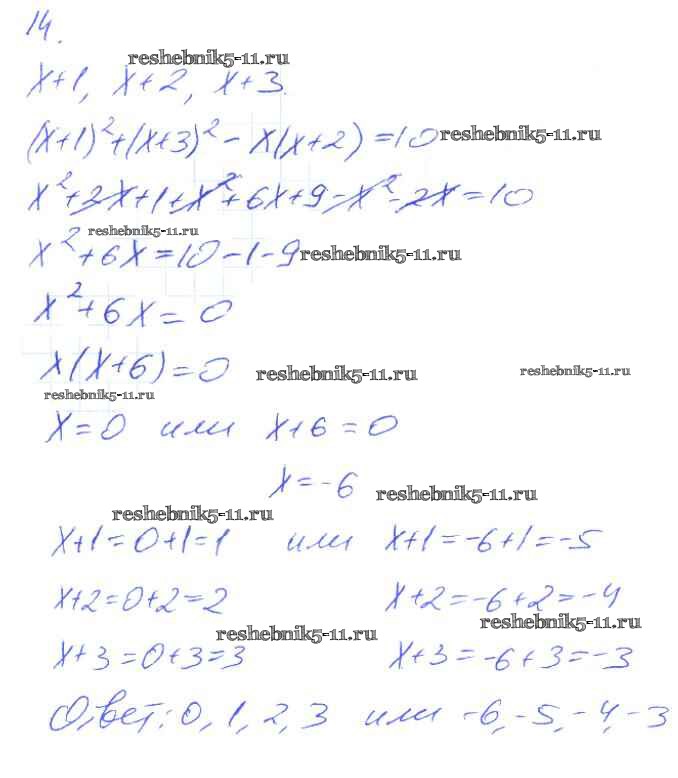 14.
reshebnik5-11.ru
x+1, x+2, x+3.
(x+1)²+(x+3)² - x(x+2) = 10 reshebnik5-11.ru
x²+2x+1+x²+6x+9-x²-2x=10
reshebnik5-11.ru
x²+6x=10-1-9 reshebnik5-11.ru
x²+6x=0
x(x+6)=0 reshebnik5-11.ru reshebnik5-11.ru
reshebnik5-11.ru
x=0 или x+6=0
x=-6 reshebnik5-11.ru
reshebnik5-11.ru
x+1=0+1=1 или x+1=-6+1=-5
x+2=0+2=2 x+2=-6+2=-4
reshebnik5-11.ru reshebnik5-11.ru
x+3=0+3=3 x+3=-6+3=-3
Ответ: 0, 1, 2, 3 или -6, -5, -4, -3